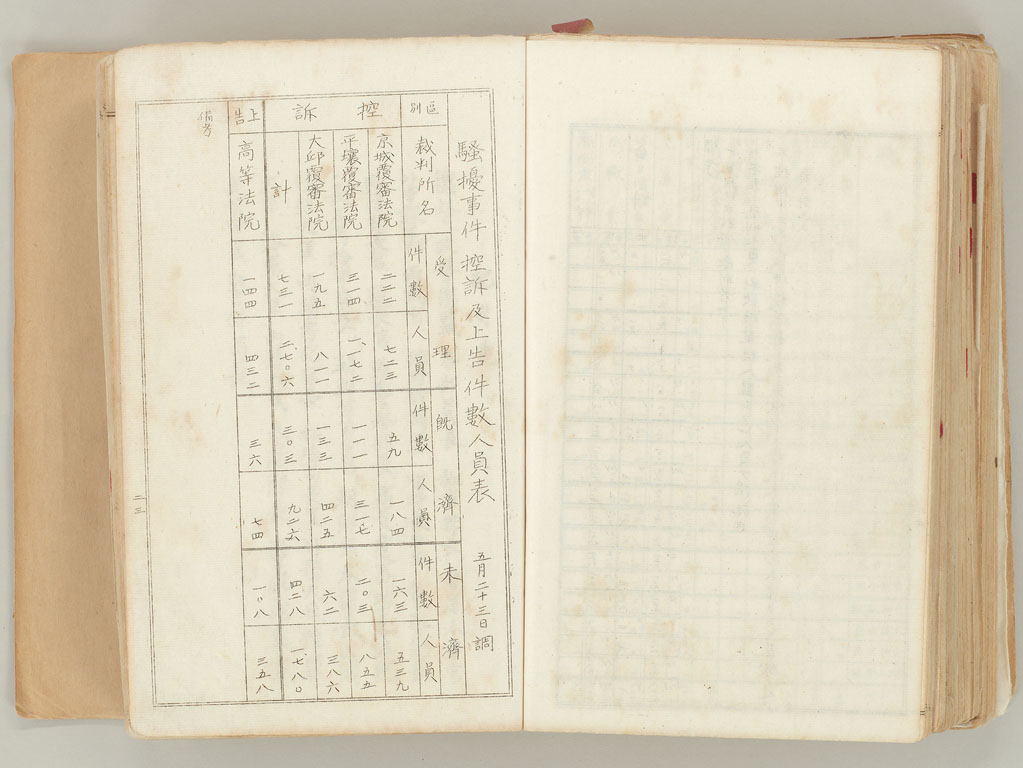 騷擾事件控訴及上告件數人員表 五月二十三日調
區別 裁判所名 受理 件數 人員 既濟 件數 人員 未濟 件數 人員
控訴
京城覆審法院 二二二 七二三 五九 一八四 一六三 五三九
平壤覆審法院 三一四 一、一七二 一一一 三一七 二〇三 八五五
大邱覆審法院 一九五 八一一 一三三 四二五 六二 三八六
計 七三一 二、七〇六 三〇三 九二六 四二八 一、七八〇
上告 高等法院 一四四 四三二 三六 七四 一〇八 三五八
備考
二三